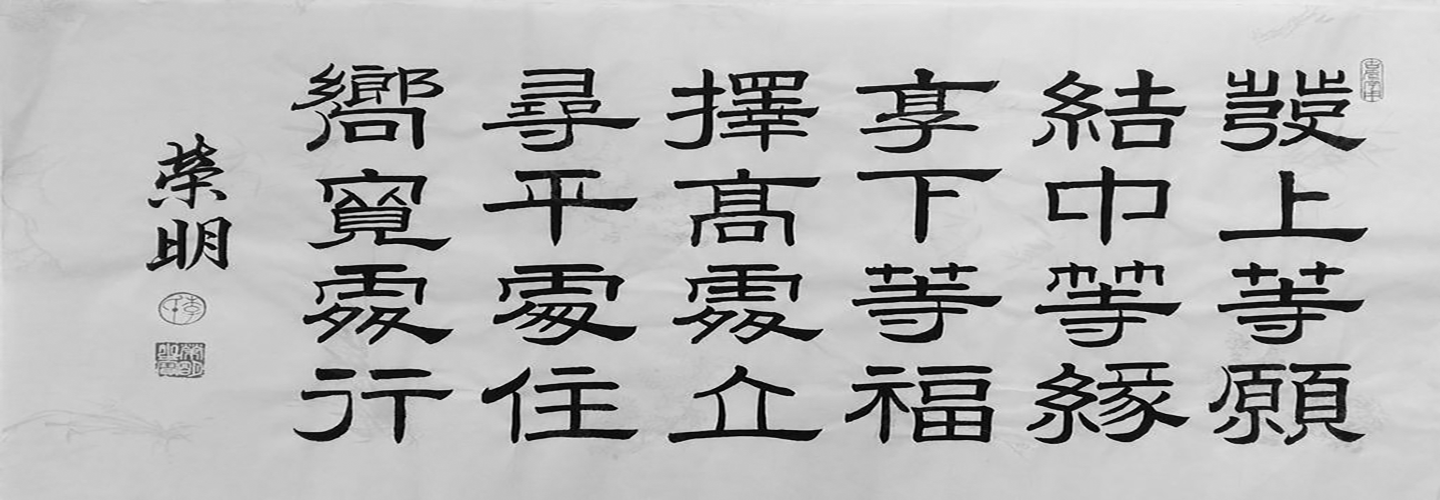 發上等願
結中等緣
享下等福
擇高處立
尋平處住
嚮寬處行
榮明